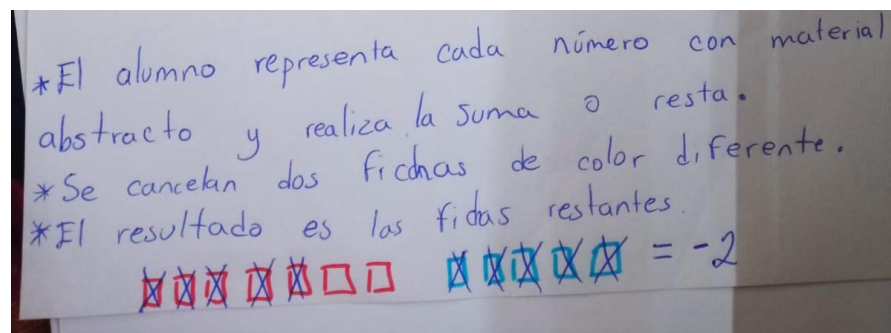 *El alumno representa cada número con material
abstracto y realiza la suma o resta.
*Se cancelan dos fichas de color diferente.
*El resultado es las fichas restantes.
= -2